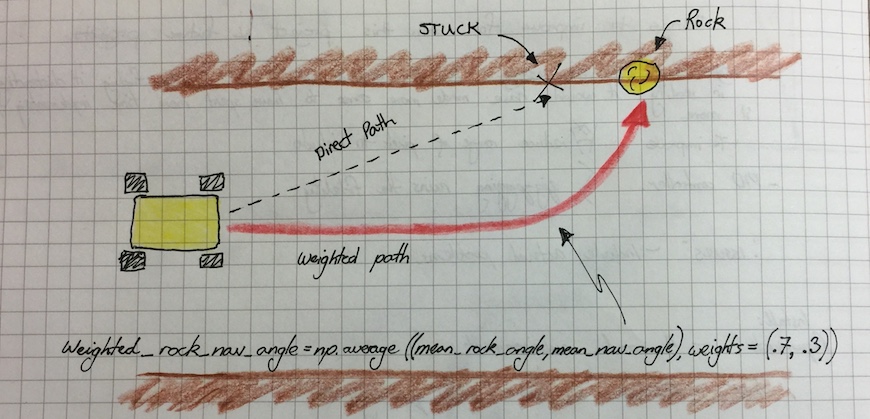 STUCK
Rock
Direct Path
Weighted path
Weighted_rock_nav_angle = np.average ((mean_rock_angle, mean_nav_angle), weights = (.7, .3))